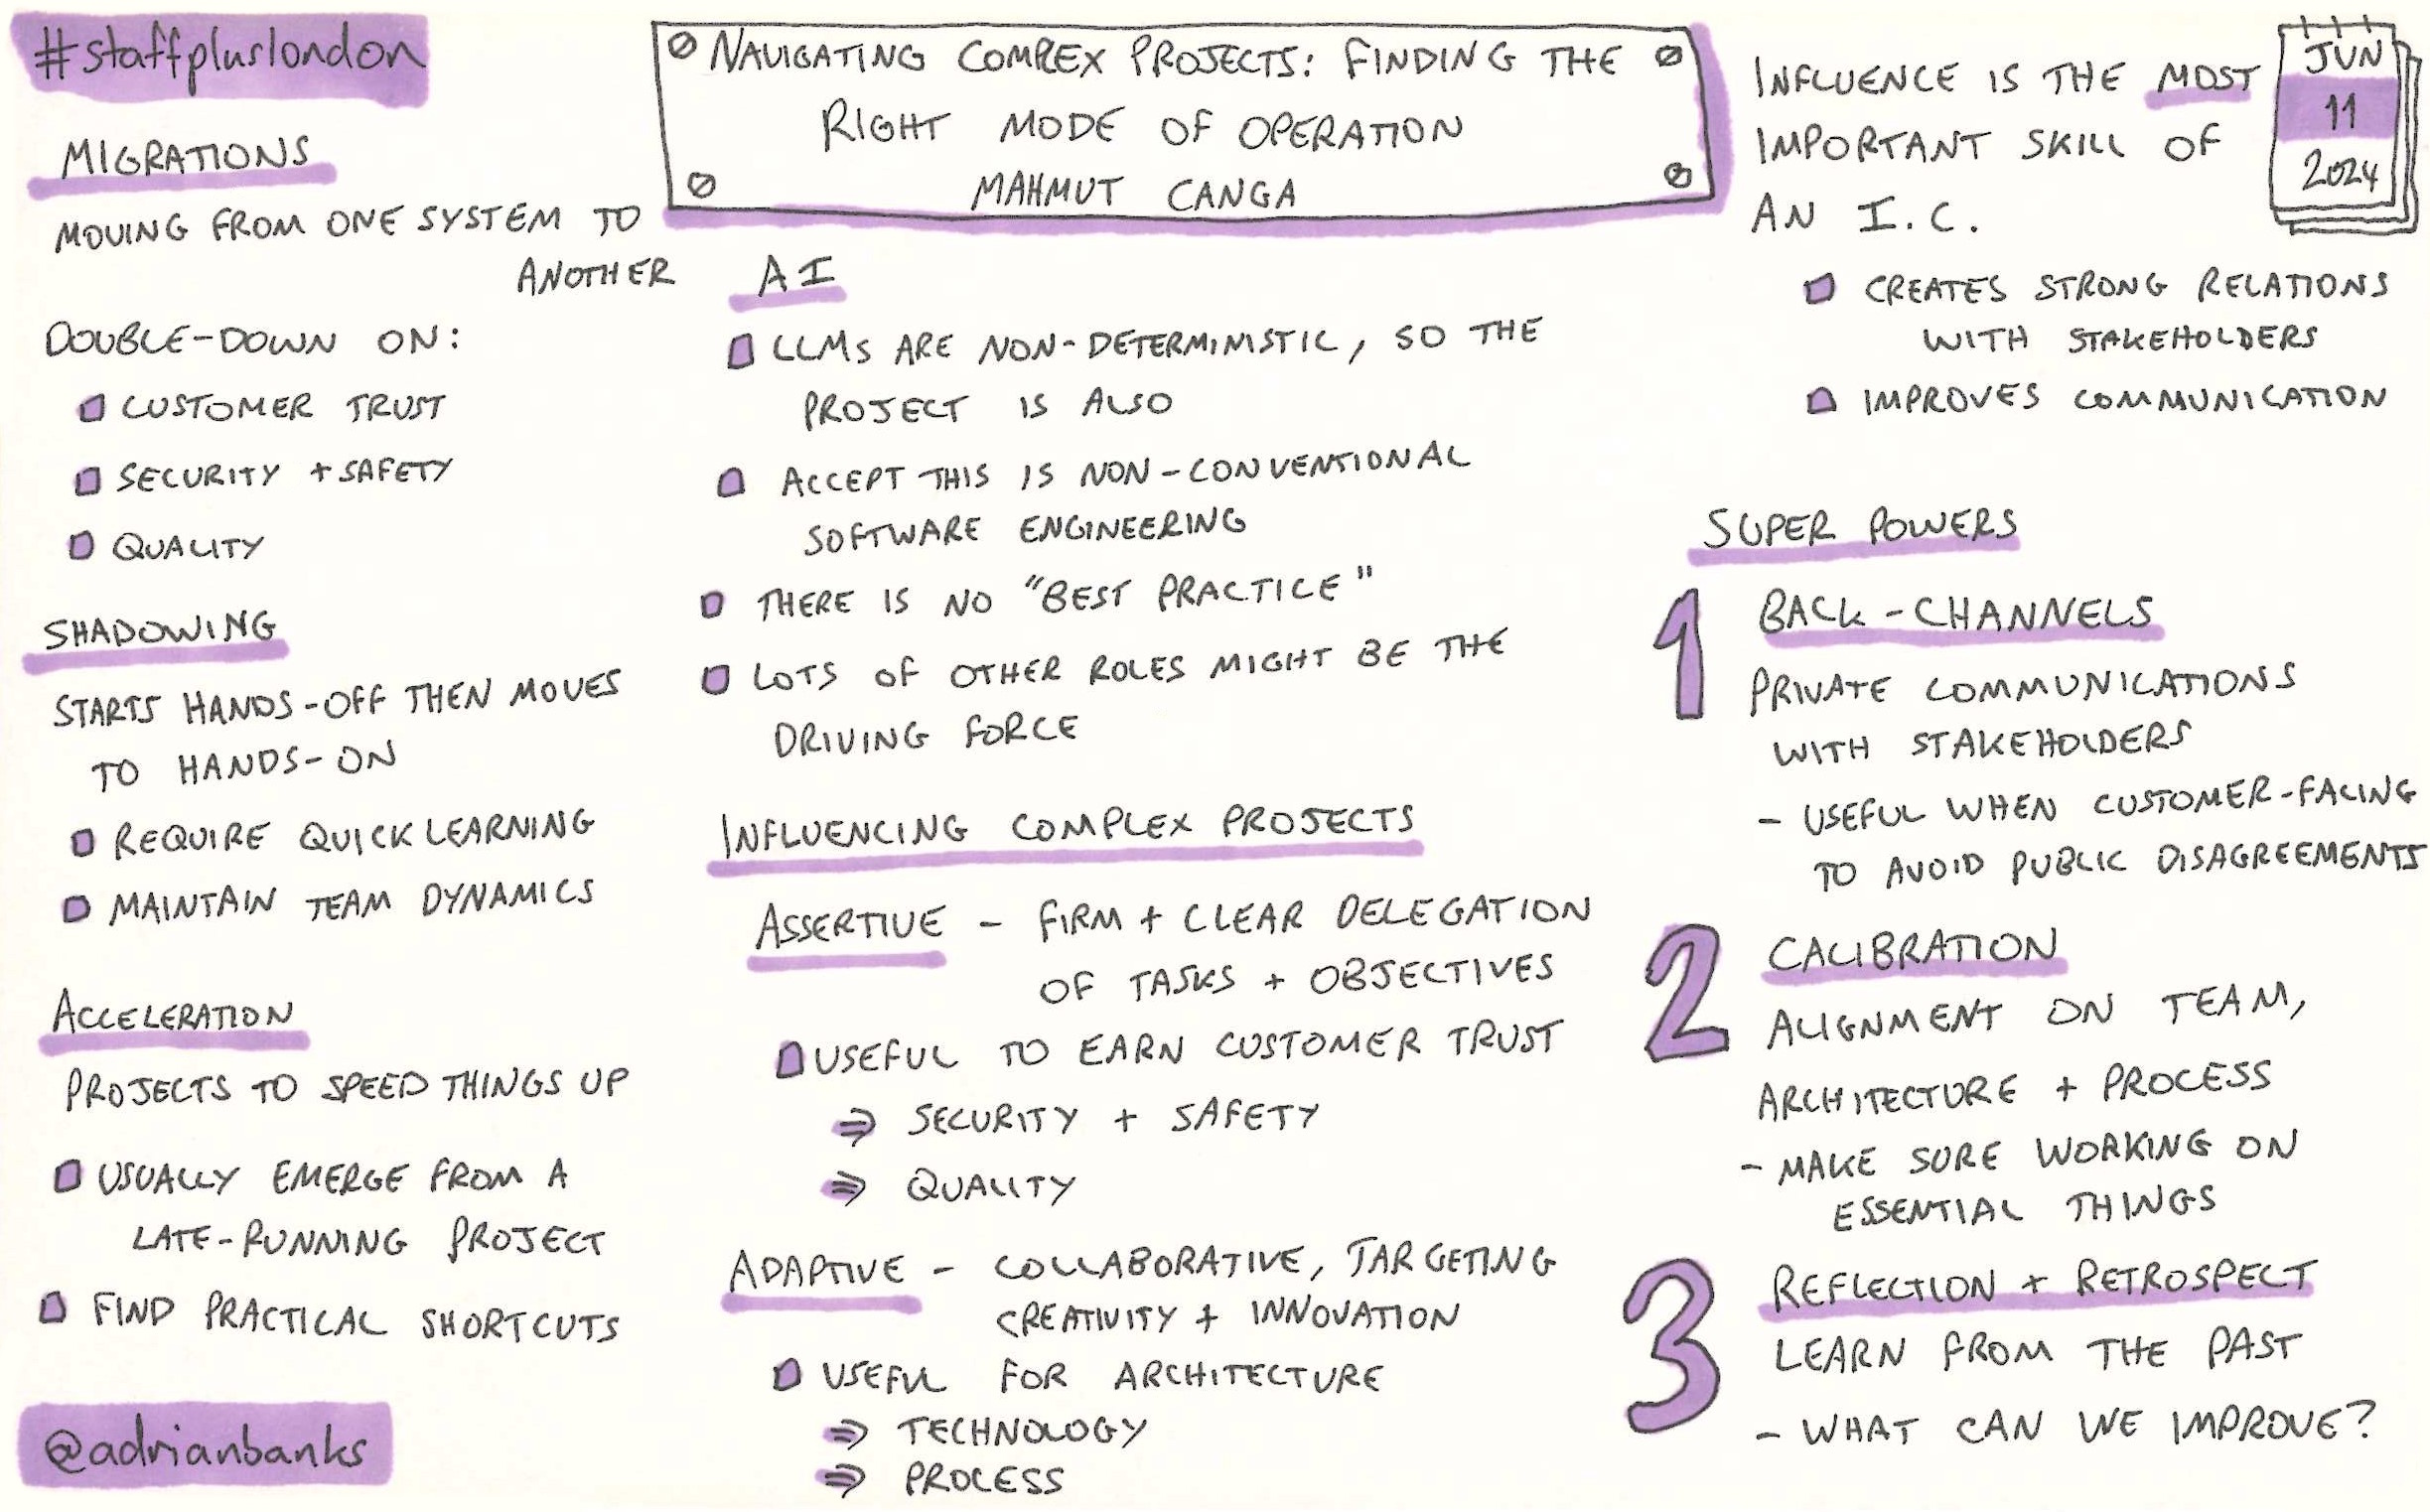 #staffpluslondon
MIGRATIONS
MOVING FROM ONE SYSTEM TO
ANOTHER
DOUBLE-DOWN ON:
CUSTOMER TRUST
SECURITY + SAFETY
QUALITY
SHADOWING
STARTS HANDS-OFF THEN MOVES
TO HANDS-ON
REQUIRE QUICK LEARNING
MAINTAIN TEAM DYNAMICS
ACCELERATION
PROJECTS TO SPEED THINGS UP
USUALLY EMERGE FROM A
LATE-RUNNING PROJECT
FIND PRACTICAL SHORTCUTS
@adrianbanks
NAVIGATING COMPLEX PROJECTS: FINDING THE
RIGHT MODE OF OPERATION
MAHMUT CANGA
AI
LLMS ARE NON-DETERMINISTIC, SO THE
PROJECT IS ALSO
ACCEPT THIS IS NON-CONVENTIONAL
SOFTWARE ENGINEERING
THERE IS NO "BEST PRACTICE"
LOTS OF OTHER ROLES MIGHT BE THE
DRIVING FORCE
INFLUENCING COMPLEX PROJECTS
ASSERTIVE - FIRM + CLEAR DELEGATION
OF TASKS + OBJECTIVES
USEFUL TO EARN CUSTOMER TRUST
⇒ SECURITY + SAFETY
⇒ QUALITY
ADAPTIVE - COLLABORATIVE, TARGETING
CREATIVITY + INNOVATION
USEFUL FOR ARCHITECTURE
⇒ TECHNOLOGY
⇒ PROCESS
INFLUENCE IS THE MOST
IMPORTANT SKILL OF
AN I.C.
JUN
11
2024
CREATES STRONG RELATIONS
WITH STAKEHOLDERS
IMPROVES COMMUNICATION
SUPER POWERS
1 BACK-CHANNELS
PRIVATE COMMUNICATIONS
WITH STAKEHOLDERS
- USEFUL WHEN CUSTOMER-FACING
TO AVOID PUBLIC DISAGREEMENTS
2 CALIBRATION
ALIGNMENT ON TEAM,
ARCHITECTURE + PROCESS
- MAKE SURE WORKING ON
ESSENTIAL THINGS
3 REFLECTION + RETROSPECT
LEARN FROM THE PAST
- WHAT CAN WE IMPROVE?